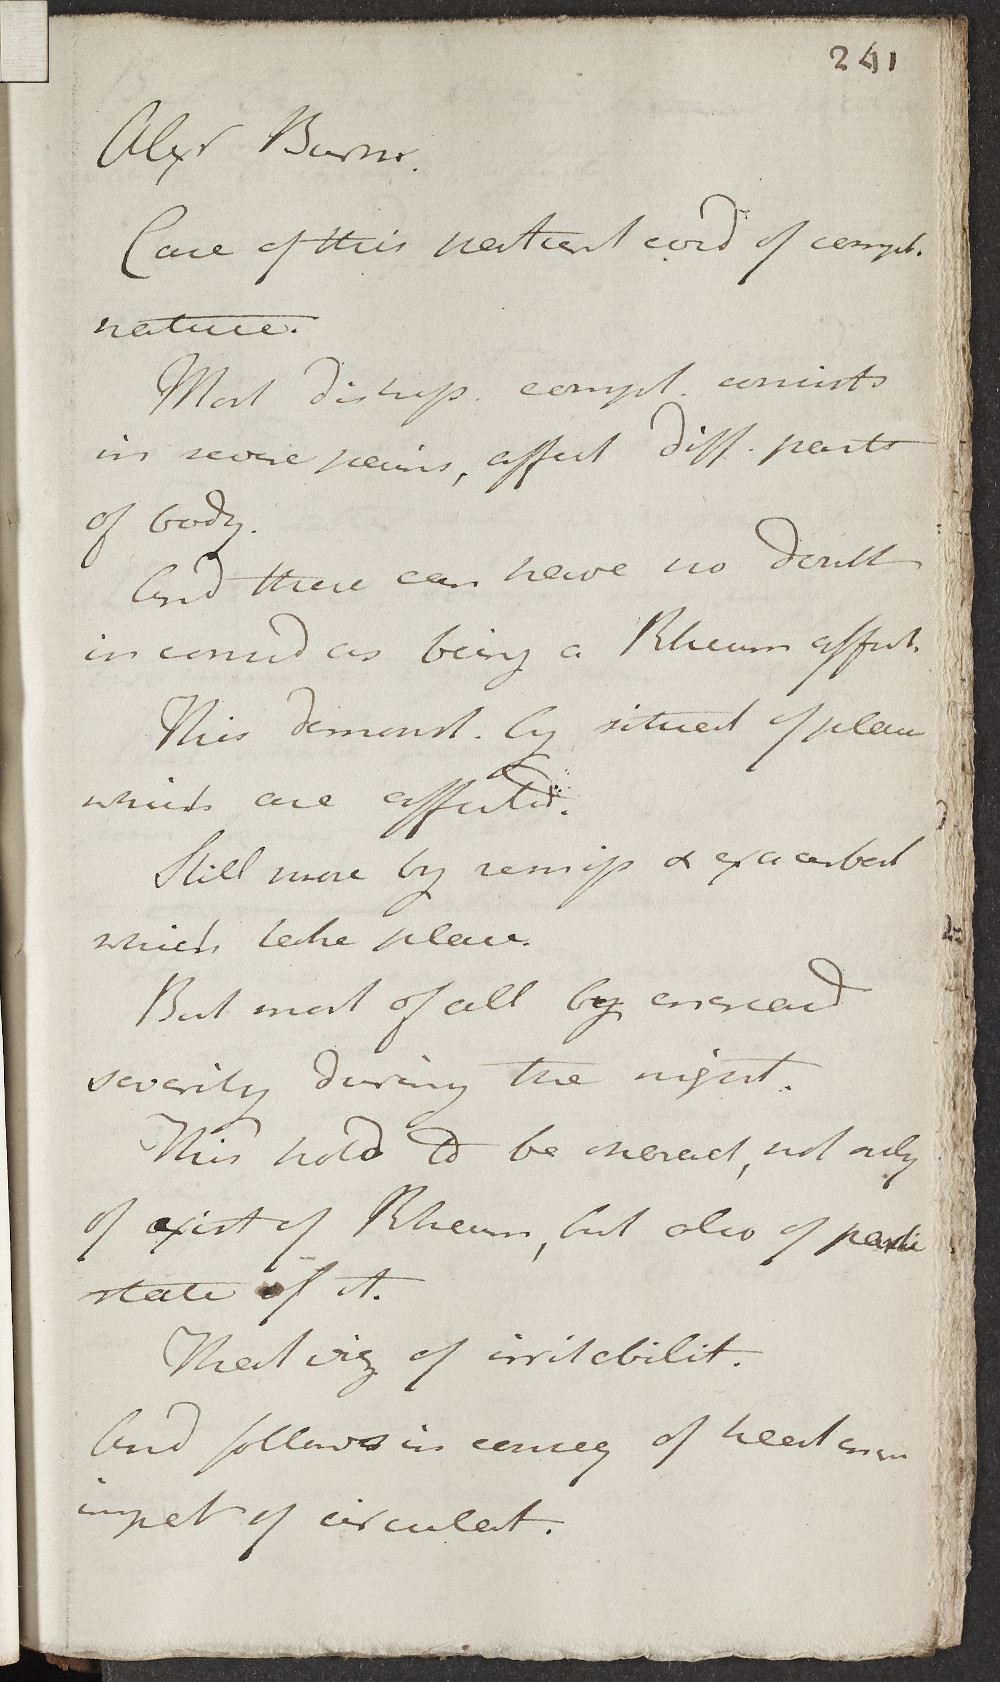 241
Alexr Burns.
Case of this patient evid of compl.
nature.
Most distress. compl. consists
in severe pains, affect diff. parts
of body.
And these can have no doubt
in consid as being a Rheum affect.
This demonst. by situat of place
which are affected.
Still more by remiss & exacerbat
which take place.
But most of all by encreasd
severity during the night.
This hold to be charact, not only
of exist of Rheum, but also of partic
state of it.
That viz of irritabilit.
And follows in conseq of heat
impet of circulat.